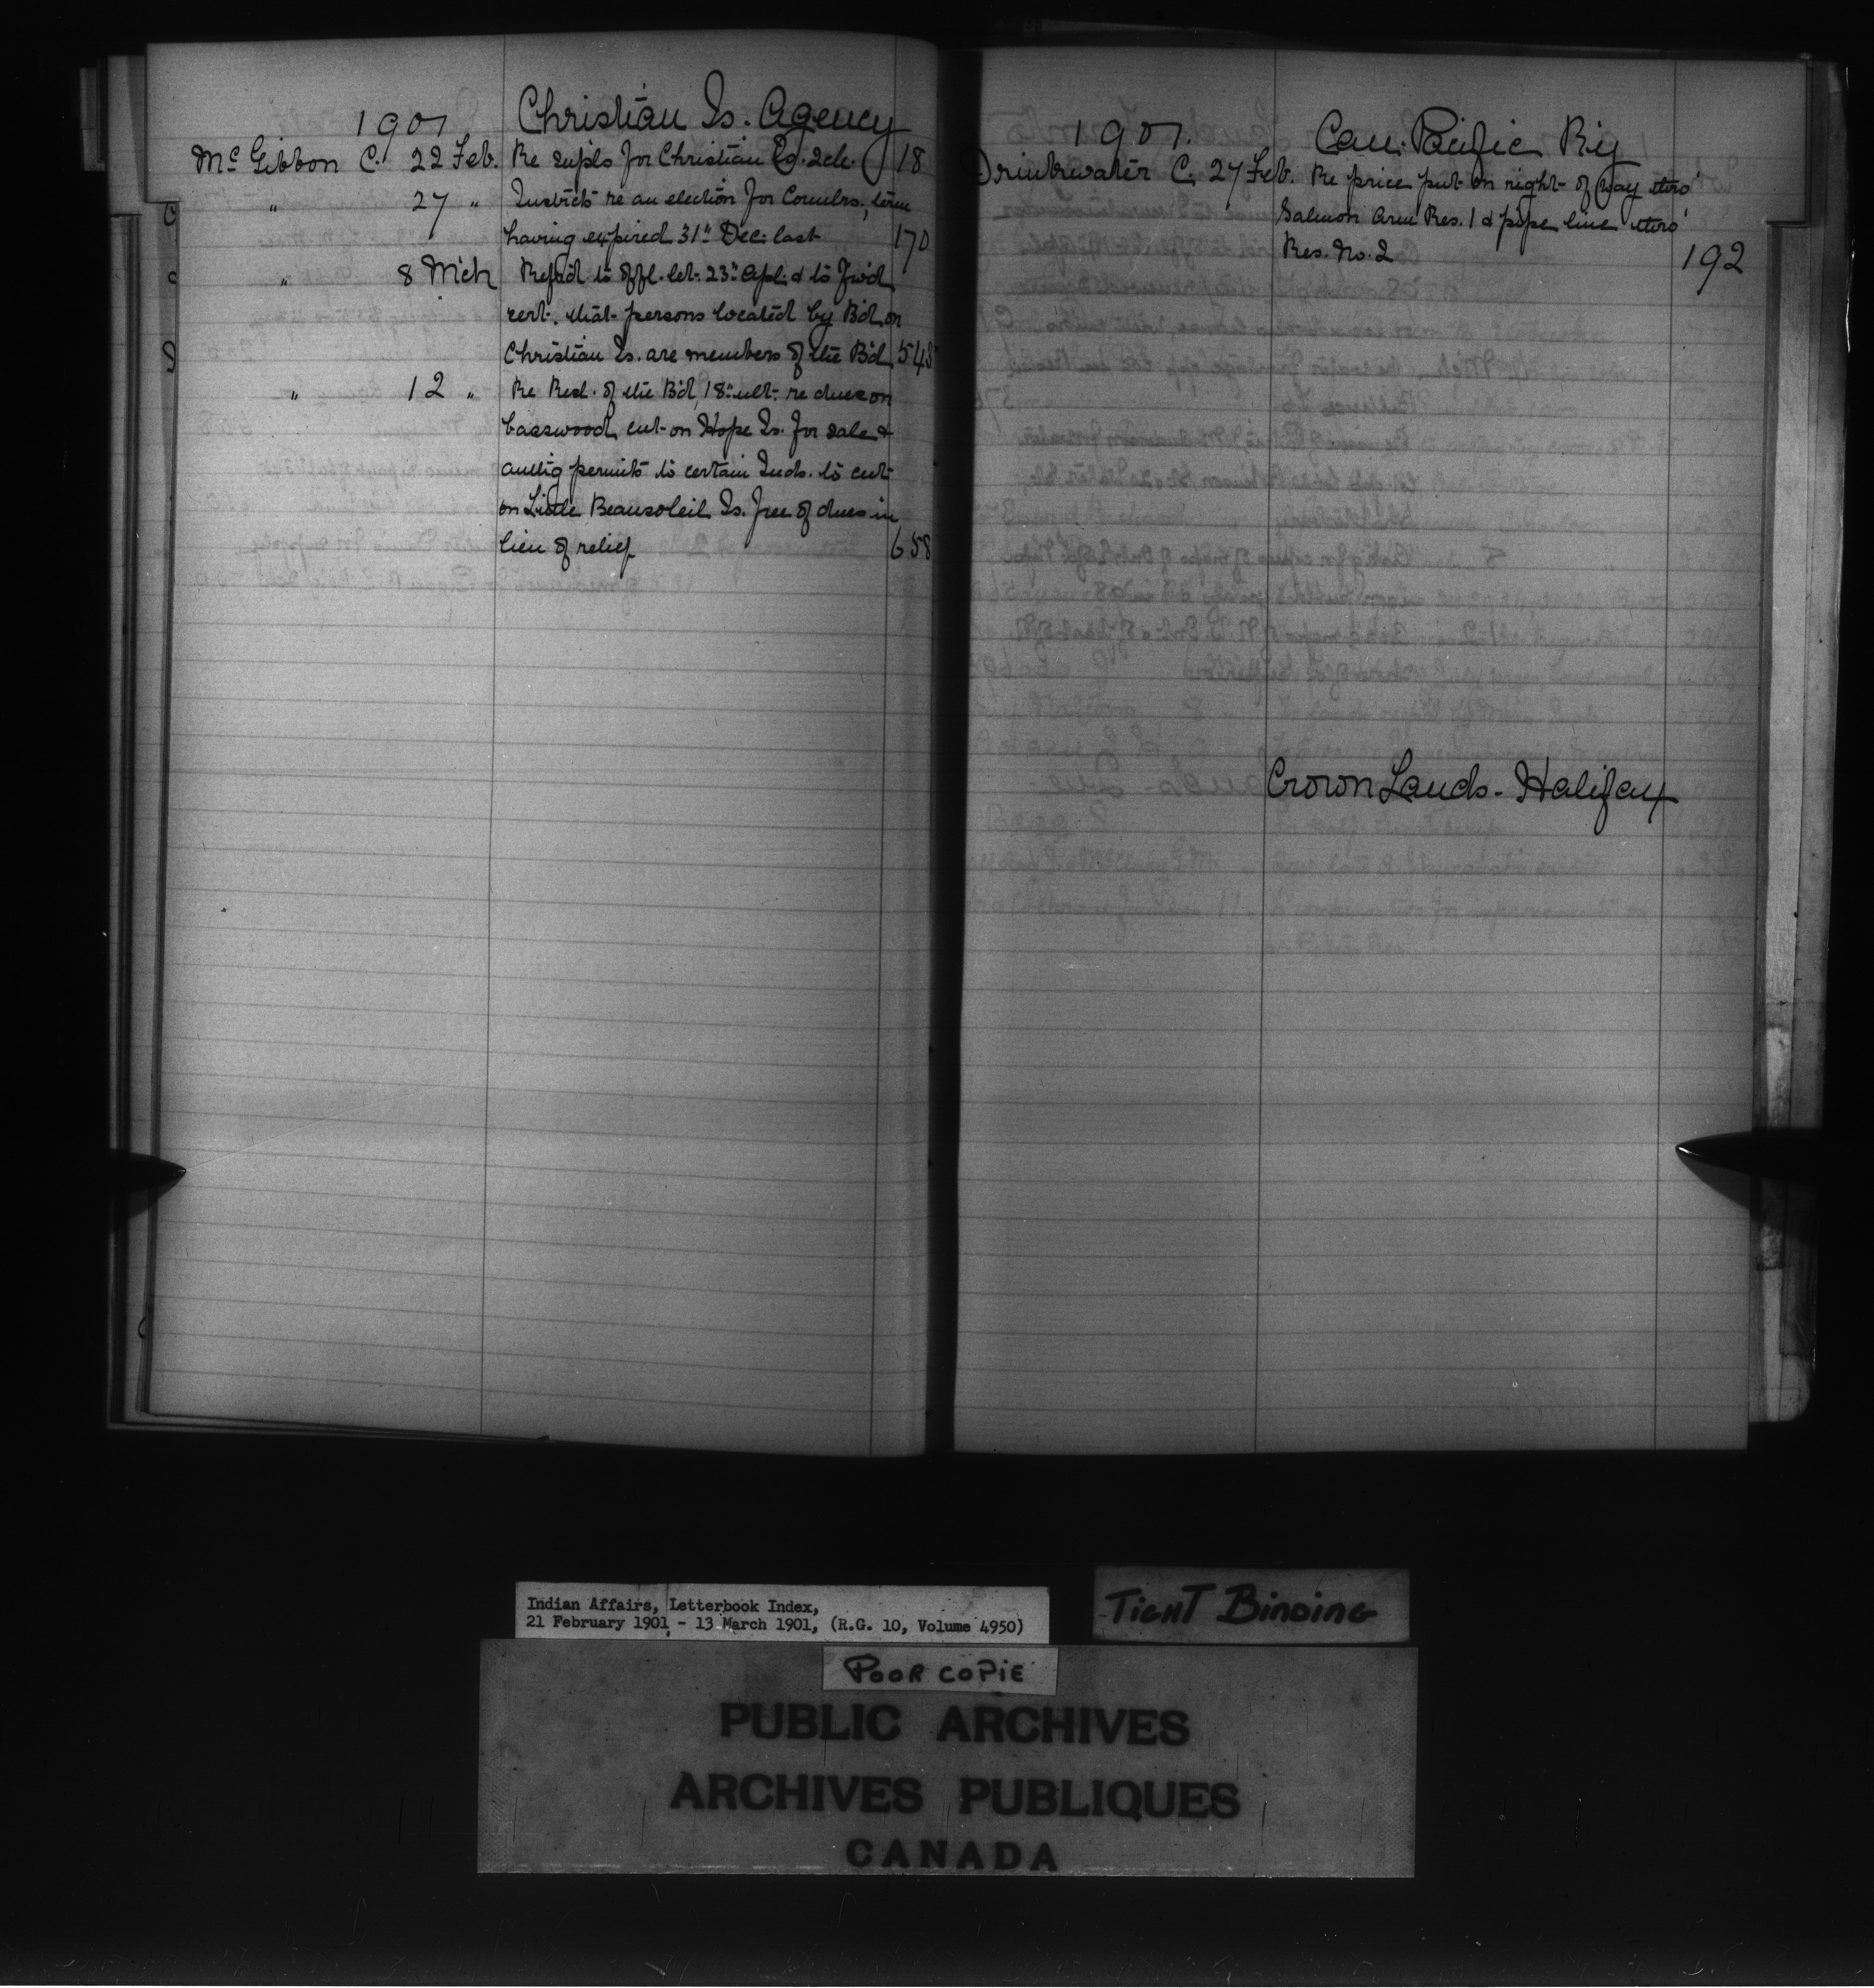 1901 Christian Is. Agency
McGibbon C. 22 Feb. Re supls for Christian Is. Sch. 18
" 27 " Instricts re an election for Counclrs., term
having expired 31st Dec. last 170
" 8 Mch Refd to offl. let. 23rd Apl. & to fwd
cert. that persons located by Bd. on
Christian Is. are members of the Bd. 548
" 12 " Re Resl. of the Bd. 18th ult. re dues on
basswood cut on Hope Is. for sale &
authg permits to certain Inds. to cut
on Little Beausoleil Is. free of dues in
lieu of relief 658
1901. Can. Pacific Ry
Drinkwater C. 27 Feb. Re price put on right of way thro'
Salmon Arm Res. 1 & pipe line thro'
Res. No. 2 192
Crown Lands - Halifax
Indian Affairs, Letterbook Index,
21 February 1901 - 13 March 1901, (R.G. 10, Volume 4950)
TIGHT BINDING
POOR COPIE
PUBLIC ARCHIVES
ARCHIVES PUBLIQUES
CANADA